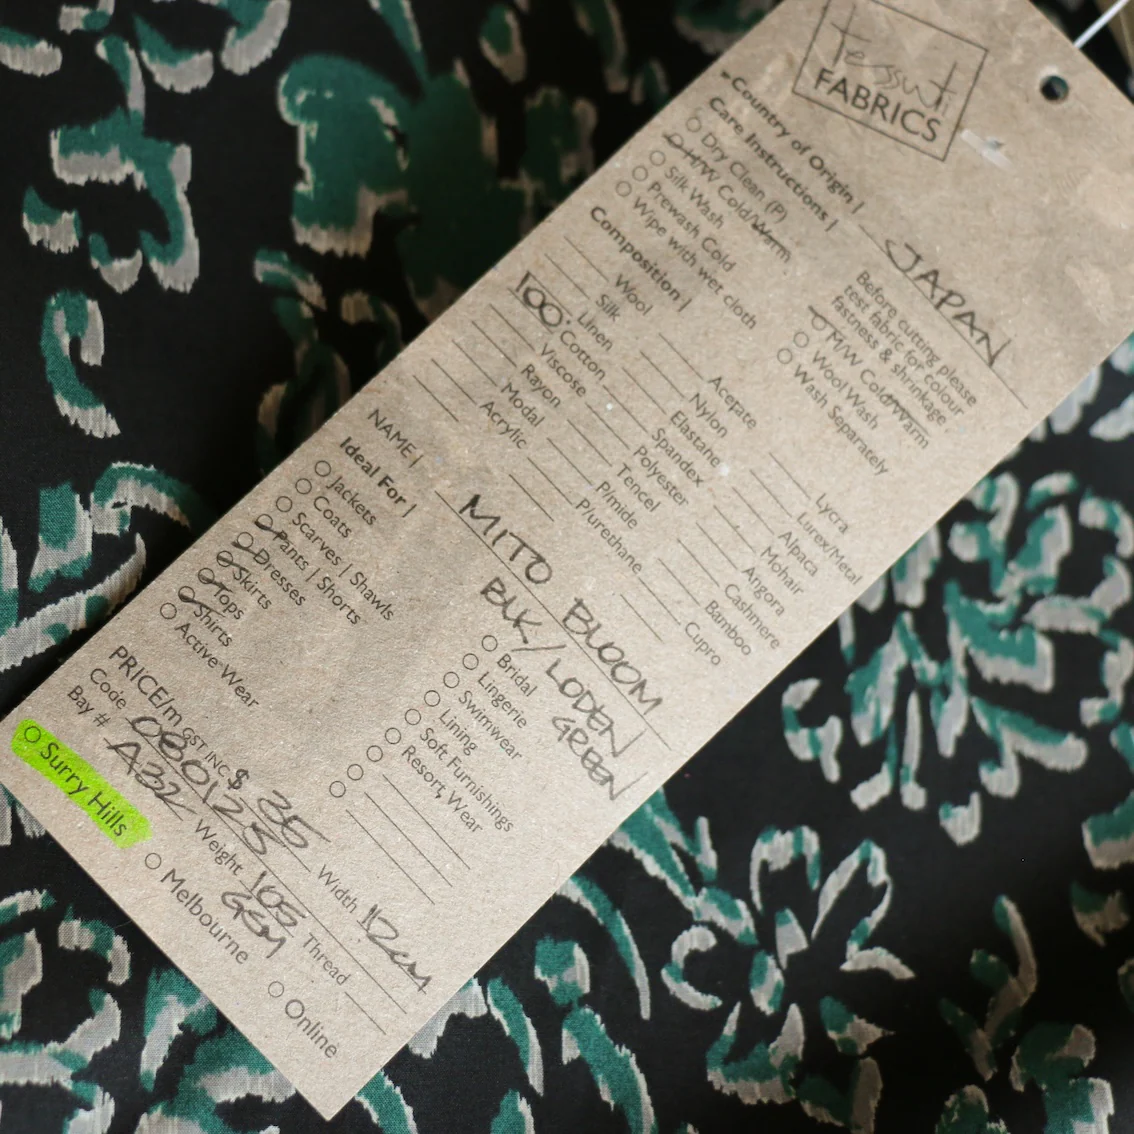 Tessuti
FABRICS
Country of Origin | JAPAN
Care Instructions |
Dry Clean (P)
H/W Cold/Warm
Silk Wash
Prewash Cold
Wipe with wet cloth
Before cutting please
test fabric for colour
fastness & shrinkage.
M/W Cold/Warm
Wool Wash
Wash Separately
Composition |
Wool
Silk
Linen
100% Cotton
Viscose
Rayon
Modal
Acrylic
Acetate
Nylon
Elastane
Spandex
Polyester
Tencel
P/mide
P/urethane
Lycra
Lurex/Metal
Alpaca
Mohair
Angora
Cashmere
Bamboo
Cupro
NAME | MITO BLOOM
BLK/LODEN
GREEN
Ideal For |
Jackets
Coats
Scarves | Shawls
Pants | Shorts
Dresses
Skirts
Tops
Shirts
Active Wear
Bridal
Lingerie
Swimwear
Lining
Soft Furnishings
Resort Wear
PRICE/m GST INC $ 35
Code 0801225 Width 112cm
Bay # A32 Weight 105 GSM Thread
Surry Hills Melbourne Online